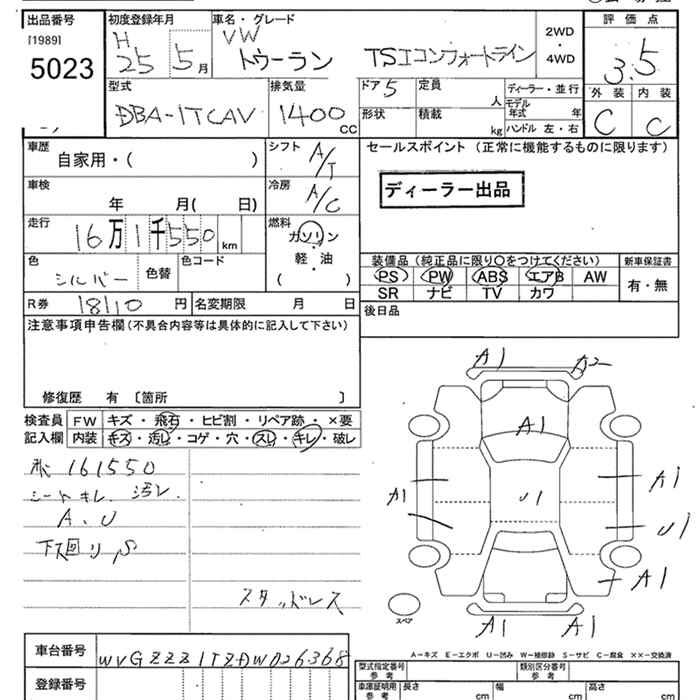 出品番号 初度登録年月 車名・グレード 評価点
[1989] H VW 2WD
5023 25 5月 トゥーラン TSIコンフォートライン ・ 3.5
4WD
型式 排気量 ドア 5 定員 ディーラー・並行 外装 内装
DBA-1TCAV 1400 CC 人 モデル年式 年 C C
形状 積載 kg ハンドル 左・右
車歴 シフト A/T セールスポイント (正常に機能するものに限ります)
自家用・( )
車検 冷房 A/C ディーラー出品
年 月( 日)
走行 燃料
16万1千550km ガソリン
軽・油
( )
色 色替 色コード 装備品(純正品に限り○をつけてください) 新車保証書
シルバー PS PW ABS エアB AW 有・無
SR ナビ TV カワ
R券 18110円 名変期限 月 日 後日品
注意事項申告欄(不具合内容等は具体的に記入して下さい)
修復歴 有 [箇所 ]
検査員 FW キズ・飛石・ヒビ割・リペア跡・×要
記入欄 内装 キズ・汚し・コゲ・穴・スレ・キレ・破レ
161550
シートキレ、汚レ
A、U
下回りS
スタッドレス
A1 A2
A1
A1 U1 A1
U1
A1
スペア A1 A1
A-キズ E-エクボ U-凹み W-補修跡 S-サビ C-腐食 ××-交換済
車台番号 WVGZZZ1TZDW026368
型式指定番号 参考 類別区分番号 参考
登録番号 車庫証明用 参考 長さ cm 幅 cm 高さ cm